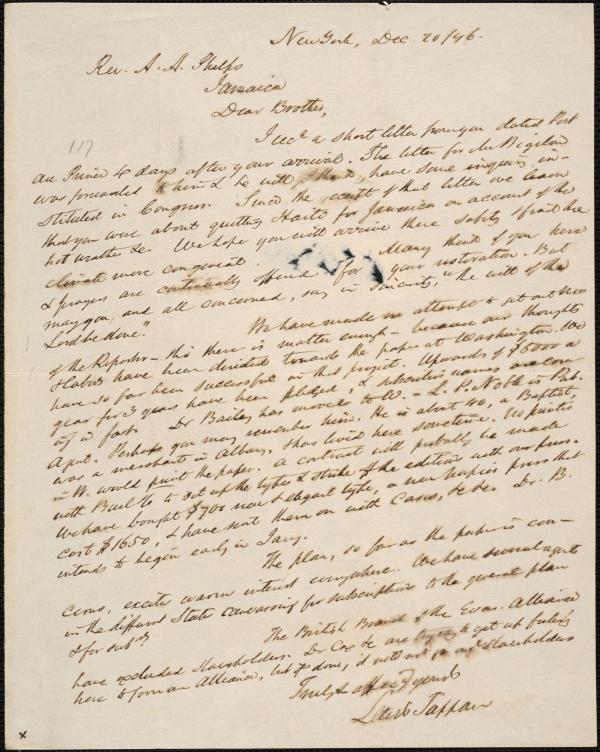 New York, Dec. 20/46.
Rev. A. A. Phelps
Jamaica
Dear Brother,
117
I recd a short letter from you dated Port
au Prince 4 days after your arrival. The letter for Mr Bigelow
was forwarded to him & he will have some inquiry in-
stituted in Congress. Since the receipt of that letter we learn
that you were about quitting Haiti for Jamaica on account of the
hot weather &c. We hope you will arrive there safely & find the
climate more congenial. Many think of you here
& prayers are continually offered for your restoration. But
may you, and all concerned, say in sincerity, "the will of the
Lord be done."
We have made no attempt to get out Nos
of the Reporter – tho there is matter enough – because our thoughts
& labors have been directed towards the paper at Washington. We
have so far been successful in this project. Upwards of $5000 a
year for 3 years have been pledged, & subscribers names are com
ing in fast. Dr Bailey has moved to W. – L. P. Noble is Pub.
Agent. Perhaps you may remember him. He is about 40, a Baptist,
was a merchant in Albany, & has lived here sometime. No printer
in W. would print the paper. A contract will probably be made
with Buell to set up the types & strike off the edition with our press.
We have bought $700 new & elegant type, a new Napier press that
cost $1650, & have sent them on with cases, &c &c. Dr. B.
intends to begin early in Jany.
The plan, so far as the paper is con-
cerns, excites warm interest everywhere. We have several agents
in the different States canvassing for subscriptions to the general plan
& for subs.
The British Branch of the Evan. Alliance
have excluded slaveholders. Dr Cox &c are trying to get up feeling
here to form an Alliance, but if done, it will not be as slaveholders
Truly & affecy yours
Lewis Tappan
x